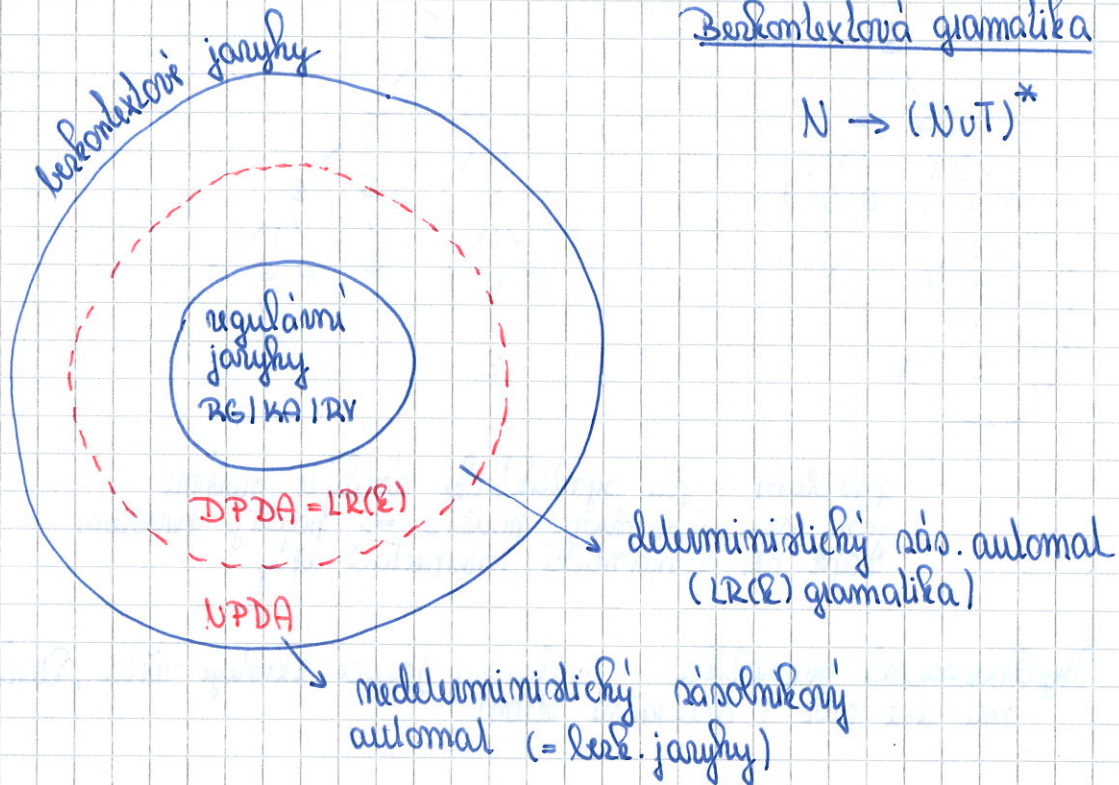 Bezkontextová gramatika
N → (N∪T)*
bezkontextové jazyky
regulární
jazyky
RG/KA/RV
DPDA = LR(k)
NPDA
deterministický zás. automat
(LR(k) gramatika)
nedeterministický zásobníkový
automat (= bezk. jazyky)